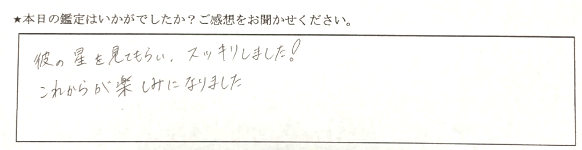 ★本日の鑑定はいかがでしたか？ご感想をお聞かせください。
彼の星を見てもらい、スッキリしました！
これからが楽しみになりました